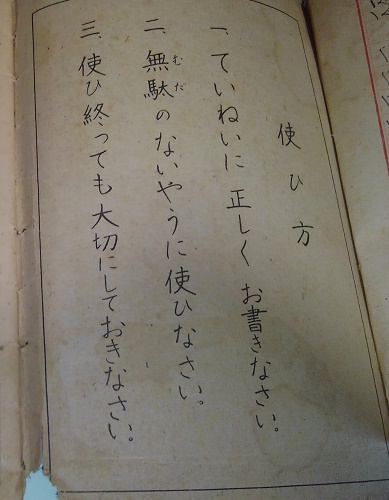 使ひ方
一、ていねいに正しくお書きなさい。
二、無駄のないやうに使ひなさい。
むだ
三、使ひ終っても大切にしておきなさい。